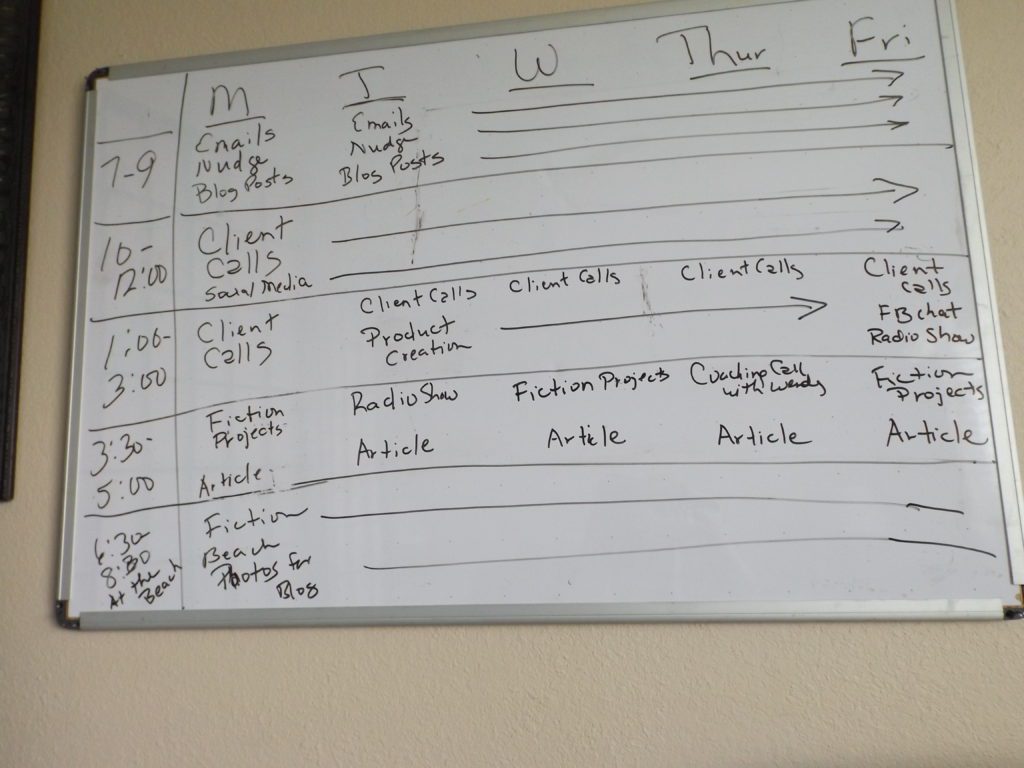 M T W Thur Fri
7-9
Emails
Nudge
Blog Posts
Emails
Nudge
Blog Posts
10-
12:00
Client
Calls
Social Media
1:00-
3:00
Client
Calls
Client Calls
Product
Creation
Client Calls
Client Calls
Client
Calls
FB chat
Radio Show
3:30-
5:00
Fiction
Projects
Article
Radio Show
Article
Fiction Projects
Article
Coaching Call
with Wendy
Article
Fiction
Projects
Article
6:30-
8:30
At the
Beach
Fiction
Beach
Photos for
Blog